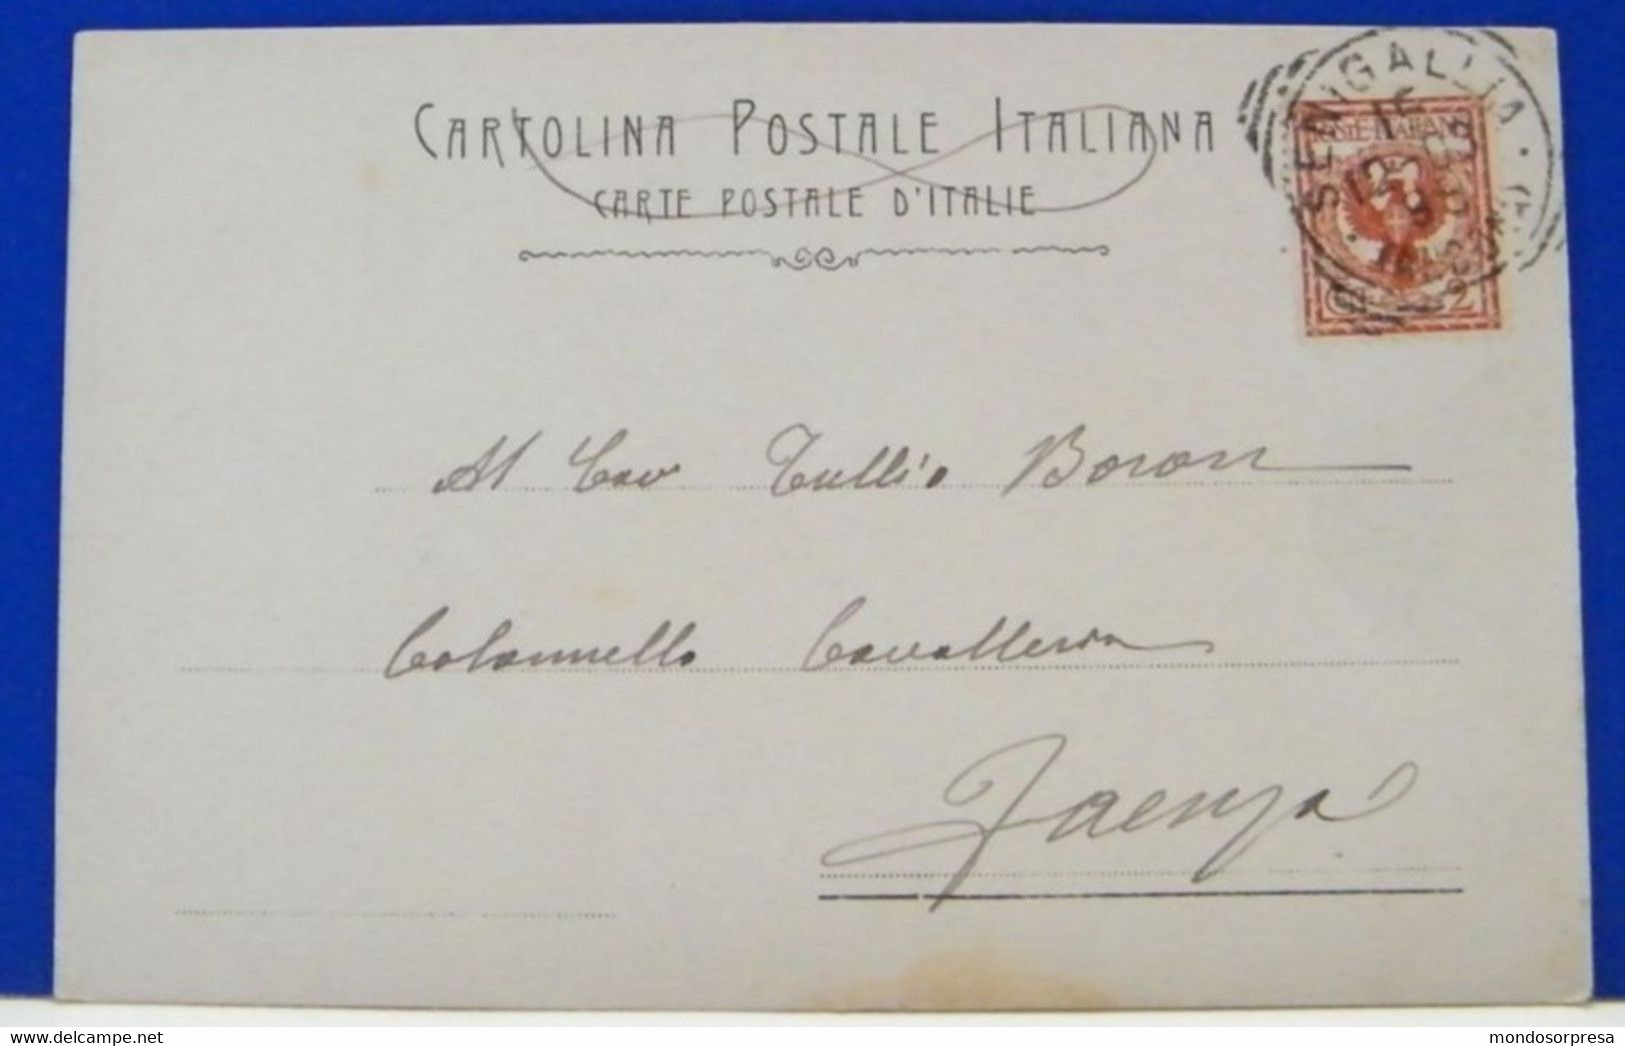 CARTOLINA POSTALE ITALIANA
CARTE POSTALE D'ITALIE
SENIGALLIA
POSTE ITALIANE
2
Al Cav Tullio Boron
Colonnello Cavalleria
Faenza
mondosorpresa